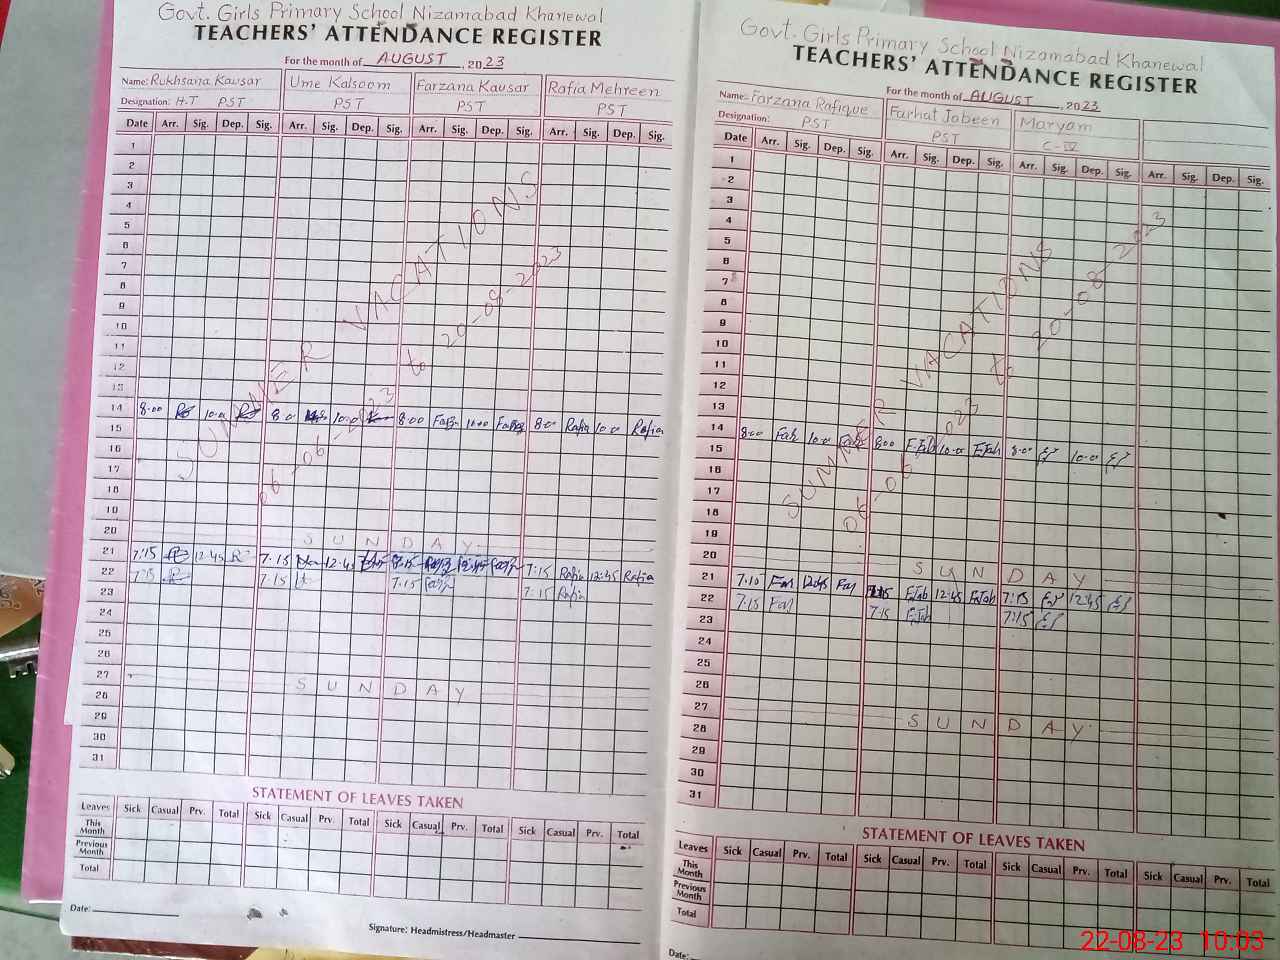 Govt. Girls Primary School Nizamabad Khanewal
TEACHERS' ATTENDANCE REGISTER
For the month of AUGUST, 2023
Name: Rukhsana Kausar Ume Kalsoom Farzana Kausar Rafia Mehreen
Designation: H-T PST PST PST PST
Date Arr. Sig. Dep. Sig. Arr. Sig. Dep. Sig. Arr. Sig. Dep. Sig. Arr. Sig. Dep. Sig.
1
2
3
4
5
6
7
8
9
10
11
12
13
SUMMER VACATIONS
06-06-2023 to 20-08-2023
14 8:00 10:0 8:0 10:0 8:00 10:00 8:0 Rafia 10:0 Rafia
15
16
17
18
19
20 SUNDAY
21 7:15 12:45 R 7:15 12:45 7:15 12:45 7:15 Rafia 12:45 Rafia
22 7:15 7:15 7:15 7:15 Rafia
23
24
25
26
27 SUNDAY
28
29
30
31
STATEMENT OF LEAVES TAKEN
Leaves Sick Casual Prv. Total Sick Casual Prv. Total Sick Casual Prv. Total Sick Casual Prv. Total
This Month
Previous Month
Total
Date:
Signature: Headmistress/Headmaster
Govt. Girls Primary School Nizamabad Khanewal
TEACHERS' ATTENDANCE REGISTER
For the month of AUGUST, 2023
Name: Farzana Rafique Farhat Jabeen Maryam
Designation: PST PST C-IV
Date Arr. Sig. Dep. Sig. Arr. Sig. Dep. Sig. Arr. Sig. Dep. Sig. Arr. Sig. Dep. Sig.
1
2
3
4
5
6
7
8
9
10
11
12
13
SUMMER VACATIONS
06-06-2023 to 20-08-2023
14 8:00 10:0 8:00 10:0 8:0 10:0
15
16
17
18
19
20 SUNDAY
21 7:10 Far 12:45 Far 12:45 7:15 12:45
22 7:15 Far 7:15 7:15
23
24
25
26
27 SUNDAY
28
29
30
31
STATEMENT OF LEAVES TAKEN
Leaves Sick Casual Prv. Total Sick Casual Prv. Total Sick Casual Prv. Total Sick Casual Prv. Total
This Month
Previous Month
Total
Date:
22-08-23 10:03